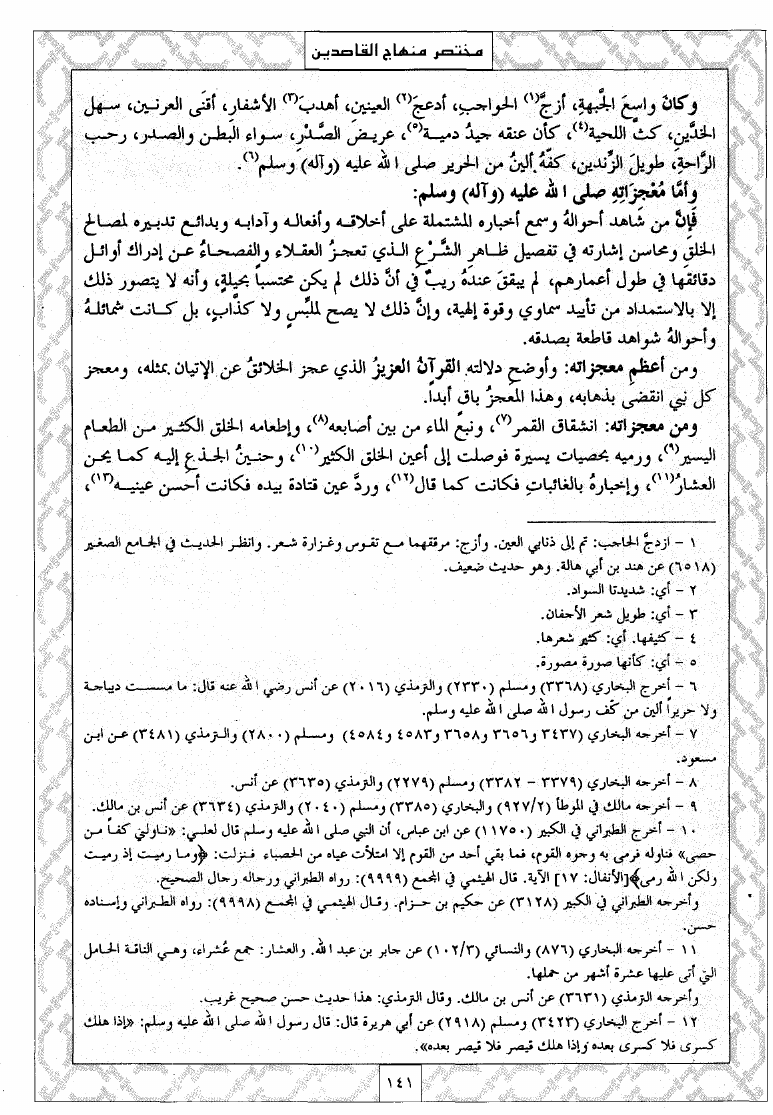 مختصر منهاج القاصدين
وكانَ واسِعَ الجَبهةِ، أزجَّ(١) الحواجبِ، أدعجَ(٢) العينينِ، أهدبَ(٣) الأشفارِ، أقنَى العرنين، سهل
الخدَّين، كثَّ اللحية(٤)، كأن عنقه جيدُ دمية(٥)، عريض الصَّدْرِ، سواء البطن والصدر، رحب
الرَّاحةِ، طويلَ الزَّندين، كفّهُ ألينُ من الحرير صلى الله عليه (وآله) وسلم(٦).
وأمَّا مُعْجزَاتِهِ صلى الله عليه (وآله) وسلم:
فَإِنَّ من شاهد أحوالهُ وسمع أخباره المشتملة على أخلاقه وأفعاله وآدابه وبدائع تدبيره لمصالح
الخلق ومحاسن إشارته في تفصيل ظاهر الشَّرْعِ الذي تعجزُ العقلاء والفصحاءُ عن إدراك أوائل
دقائقها في طول أعمارهم، لم يبقَ عندهُ ريبٌ في أنَّ ذلك لم يكن محتسباً بحيلةٍ، وأنه لا يتصور ذلك
إلا بالاستمداد من تأييد سماوي وقوة إلهية، وإنَّ ذلك لا يصح لملبِّسٍ ولا كذَّابٍ، بل كانت شمائلهُ
وأحوالهُ شواهد قاطعة بصدقه.
ومن أعظمِ معجزاته: وأوضحِ دلالته القرآنُ العزيزُ الذي عجز الخلائقُ عن الإتيان بمثله، ومعجز
كل نبي انقضى بذهابه، وهذا المعجزُ باقٍ أبداً.
ومن معجزاته: انشقاق القمر(٧)، ونبعُ الماء من بين أصابعه(٨)، وإطعامه الخلق الكثير من الطعام
اليسير(٩)، ورميه بحصيات يسيرة فوصلت إلى أعين الخلق الكثير(١٠)، وحنينُ الجذعِ إليه كما يحن
العشارُ(١١)، وإخبارهُ بالغائباتِ فكانت كما قال(١٢)، وردَّ عين قتادة بيده فكانت أحسن عينيه(١٣)،
١ - ازدجَّ الحاجب: تم إلى ذنابي العين. وأزج: مرققهما مع تقوس وغزارة شعر. وانظر الحديث في الجامع الصغير
(٦٥١٨) عن هند بن أبي هالة. وهو حديث ضعيف.
٢ - أي: شديدتا السواد.
٣ - أي: طويل شعر الأجفان.
٤ - كثيفها. أي: كثير شعرها.
٥ - أي: كأنها صورة مصورة.
٦ - أخرج البخاري (٣٣٦٨) ومسلم (٢٣٣٠) والترمذي (٢٠١٦) عن أنس رضي الله عنه قال: ما مسست ديباجة
ولا حريراً ألين من كف رسول الله صلى الله عليه وسلم.
٧ - أخرجه البخاري (٣٤٣٧ و٣٦٥٦ و٣٦٥٨ و٤٥٨٣ و٤٥٨٤) ومسلم (٢٨٠٠) والترمذي (٣٤٨١) عن ابن
مسعود.
٨ - أخرجه البخاري (٣٣٧٩ - ٣٣٨٢) ومسلم (٢٢٧٩) والترمذي (٣٦٣٥) عن أنس.
٩ - أخرجه مالك في الموطأ (٩٢٧/٢) والبخاري (٣٣٨٥) ومسلم (٢٠٤٠) والترمذي (٣٦٣٤) عن أنس بن مالك.
١٠ - أخرج الطبراني في الكبير (١١٧٥٠) عن ابن عباس، أن النبي صلى الله عليه وسلم قال لعلي: «ناولني كفاً من
حصى» فناوله فرمى به وجوه القوم، فما بقي أحد من القوم إلا امتلأت عيناه من الحصباء فنزلت: ﴿وما رميت إذ رميت
ولكن الله رمى﴾[الأنفال: ١٧] الآية. قال الهيثمي في المجمع (٩٩٩٩): رواه الطبراني ورجاله رجال الصحيح.
وأخرجه الطبراني في الكبير (٣١٢٨) عن حكيم بن حزام. وقال الهيثمي في المجمع (٩٩٩٨): رواه الطبراني وإسناده
حسن.
١١ - أخرجه البخاري (٨٧٦) والنسائي (١٠٢/٣) عن جابر بن عبد الله. والعشار: جمع عُشراء، وهي الناقة الحامل
التي أتى عليها عشرة أشهر من حملها.
وأخرجه الترمذي (٣٦٣١) عن أنس بن مالك. وقال الترمذي: هذا حديث حسن صحيح غريب.
١٢ - أخرج البخاري (٣٤٢٣) ومسلم (٢٩١٨) عن أبي هريرة قال: قال رسول الله صلى الله عليه وسلم: «إذا هلك
كسرى فلا كسرى بعده وإذا هلك قيصر فلا قيصر بعده».
١٤١